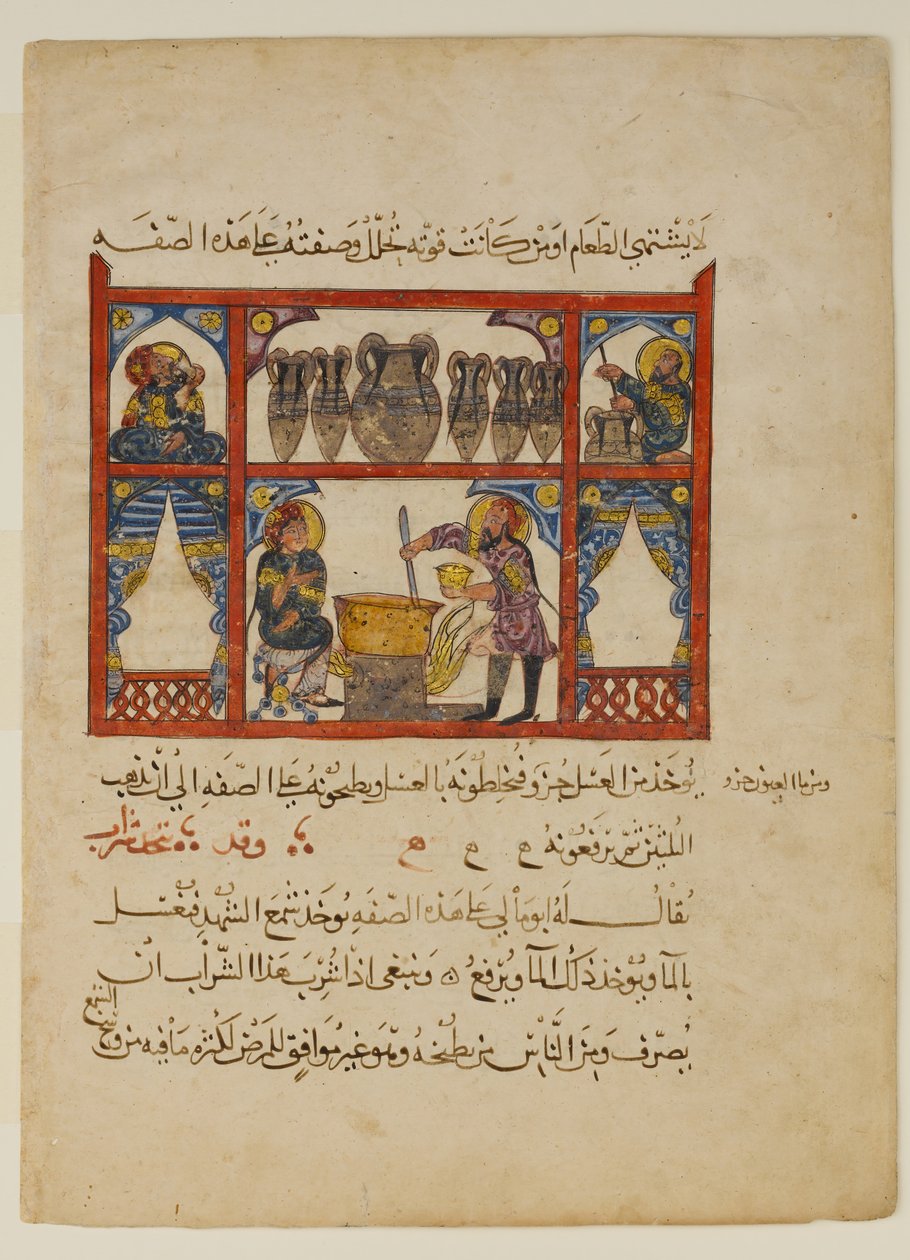 لا يشتهي الطعام او من كانت قوته تحلل وصفته على هذه الصفه
يوخذ من العسل جزو فيخلطونه بالعسل ويطبخونه على الصفه الي ان يذهب
ومن ما العيون جزو
الثلثين ثم يرفعونه ح ح ح وقد يتخذ شراب
يقال له ابومالي على هذه الصفه يوخذ شمع الشهد فيغسل
بالما ويوخذ ذلك الما ويرفع وينبغي اذا شرب هذا الشراب ان
يصرف ومن الناس من يطبخه وهو غير موافق للمرض لكثره ما فيه من وسخ
الشمع